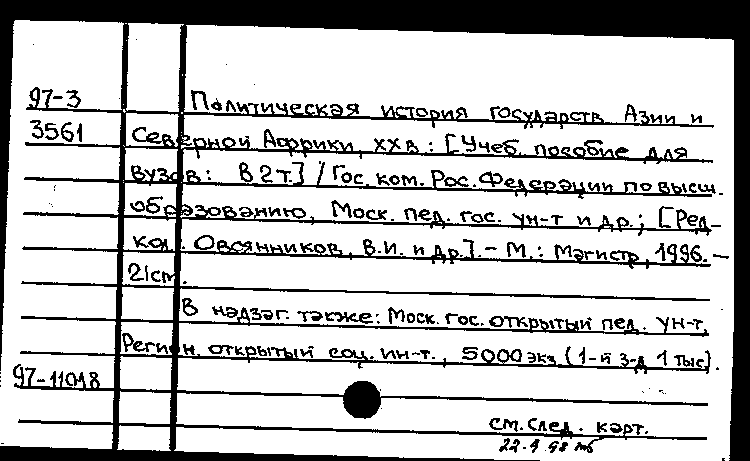 97-3 Политическая история государств Азии и
3561 Северной Африки, XX в. : [Учеб. пособие для
вузов: В 2 т.] / Гос. ком. Рос. Федерации по высш.
образованию, Моск. пед. гос. ун-т и др.; [Ред-
кол. Овсянников, В.И. и др.]. - М.: Магистр, 1996. -
21см.
В надзаг. также: Моск. гос. открытый пед. ун-т,
Регион. открытый соц. ин-т., 5000 экз. (1-й з-д 1 тыс).
97-11018
см. след. карт.
22-9 98